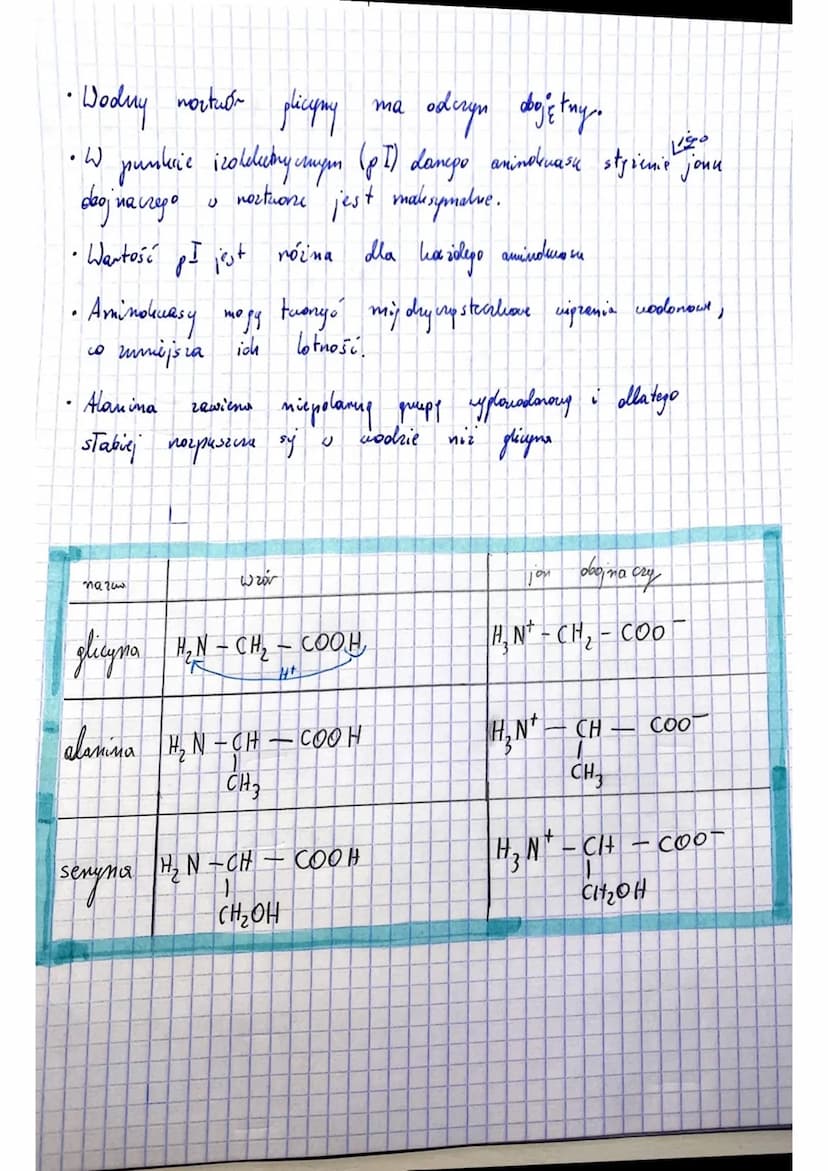 • Wodny roztwór glicyny ma odczyn obojętny.
• W punkcie izoelektrycznym (pI) danego aminokwasu stężenie jego jonu
obojnaczego w roztworze jest maksymalne.
• Wartość pI jest różna dla każdego aminokwasu
• Aminokwasy mogą tworzyć międzycząsteczkowe wiązania wodorowe,
co zmniejsza ich lotność.
• Alanina zawiera niepolarną grupę węglowodorową i dlatego
słabiej rozpuszcza się w wodzie niż glicyna
nazwa wzór jon obojnaczy
glicyna H₂N – CH₂ – COOH H₃N⁺ – CH₂ – COO⁻
H⁺
alanina H₂N – CH – COOH H₃N⁺ – CH – COO⁻
CH₃ CH₃
seryna H₂N – CH – COOH H₃N⁺ – CH – COO⁻
CH₂OH CH₂OH